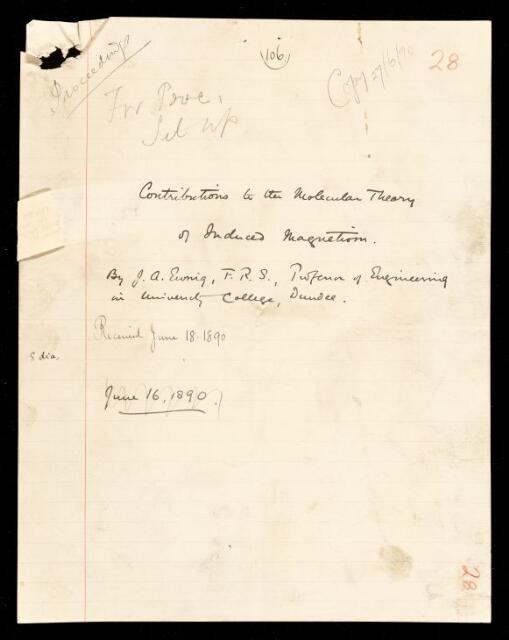 Proceedings
(106)
Copy 27/6/90
28
For Proc.
Set up
Contributions to the Molecular Theory
of Induced Magnetism.
By J. A. Ewing, F. R. S., Professor of Engineering
in University College, Dundee.
Received June 18. 1890
5 dia.
June 16, 1890.
28